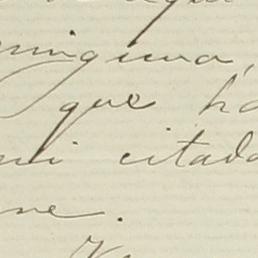 ninguna,
que há
mi citada
ne.